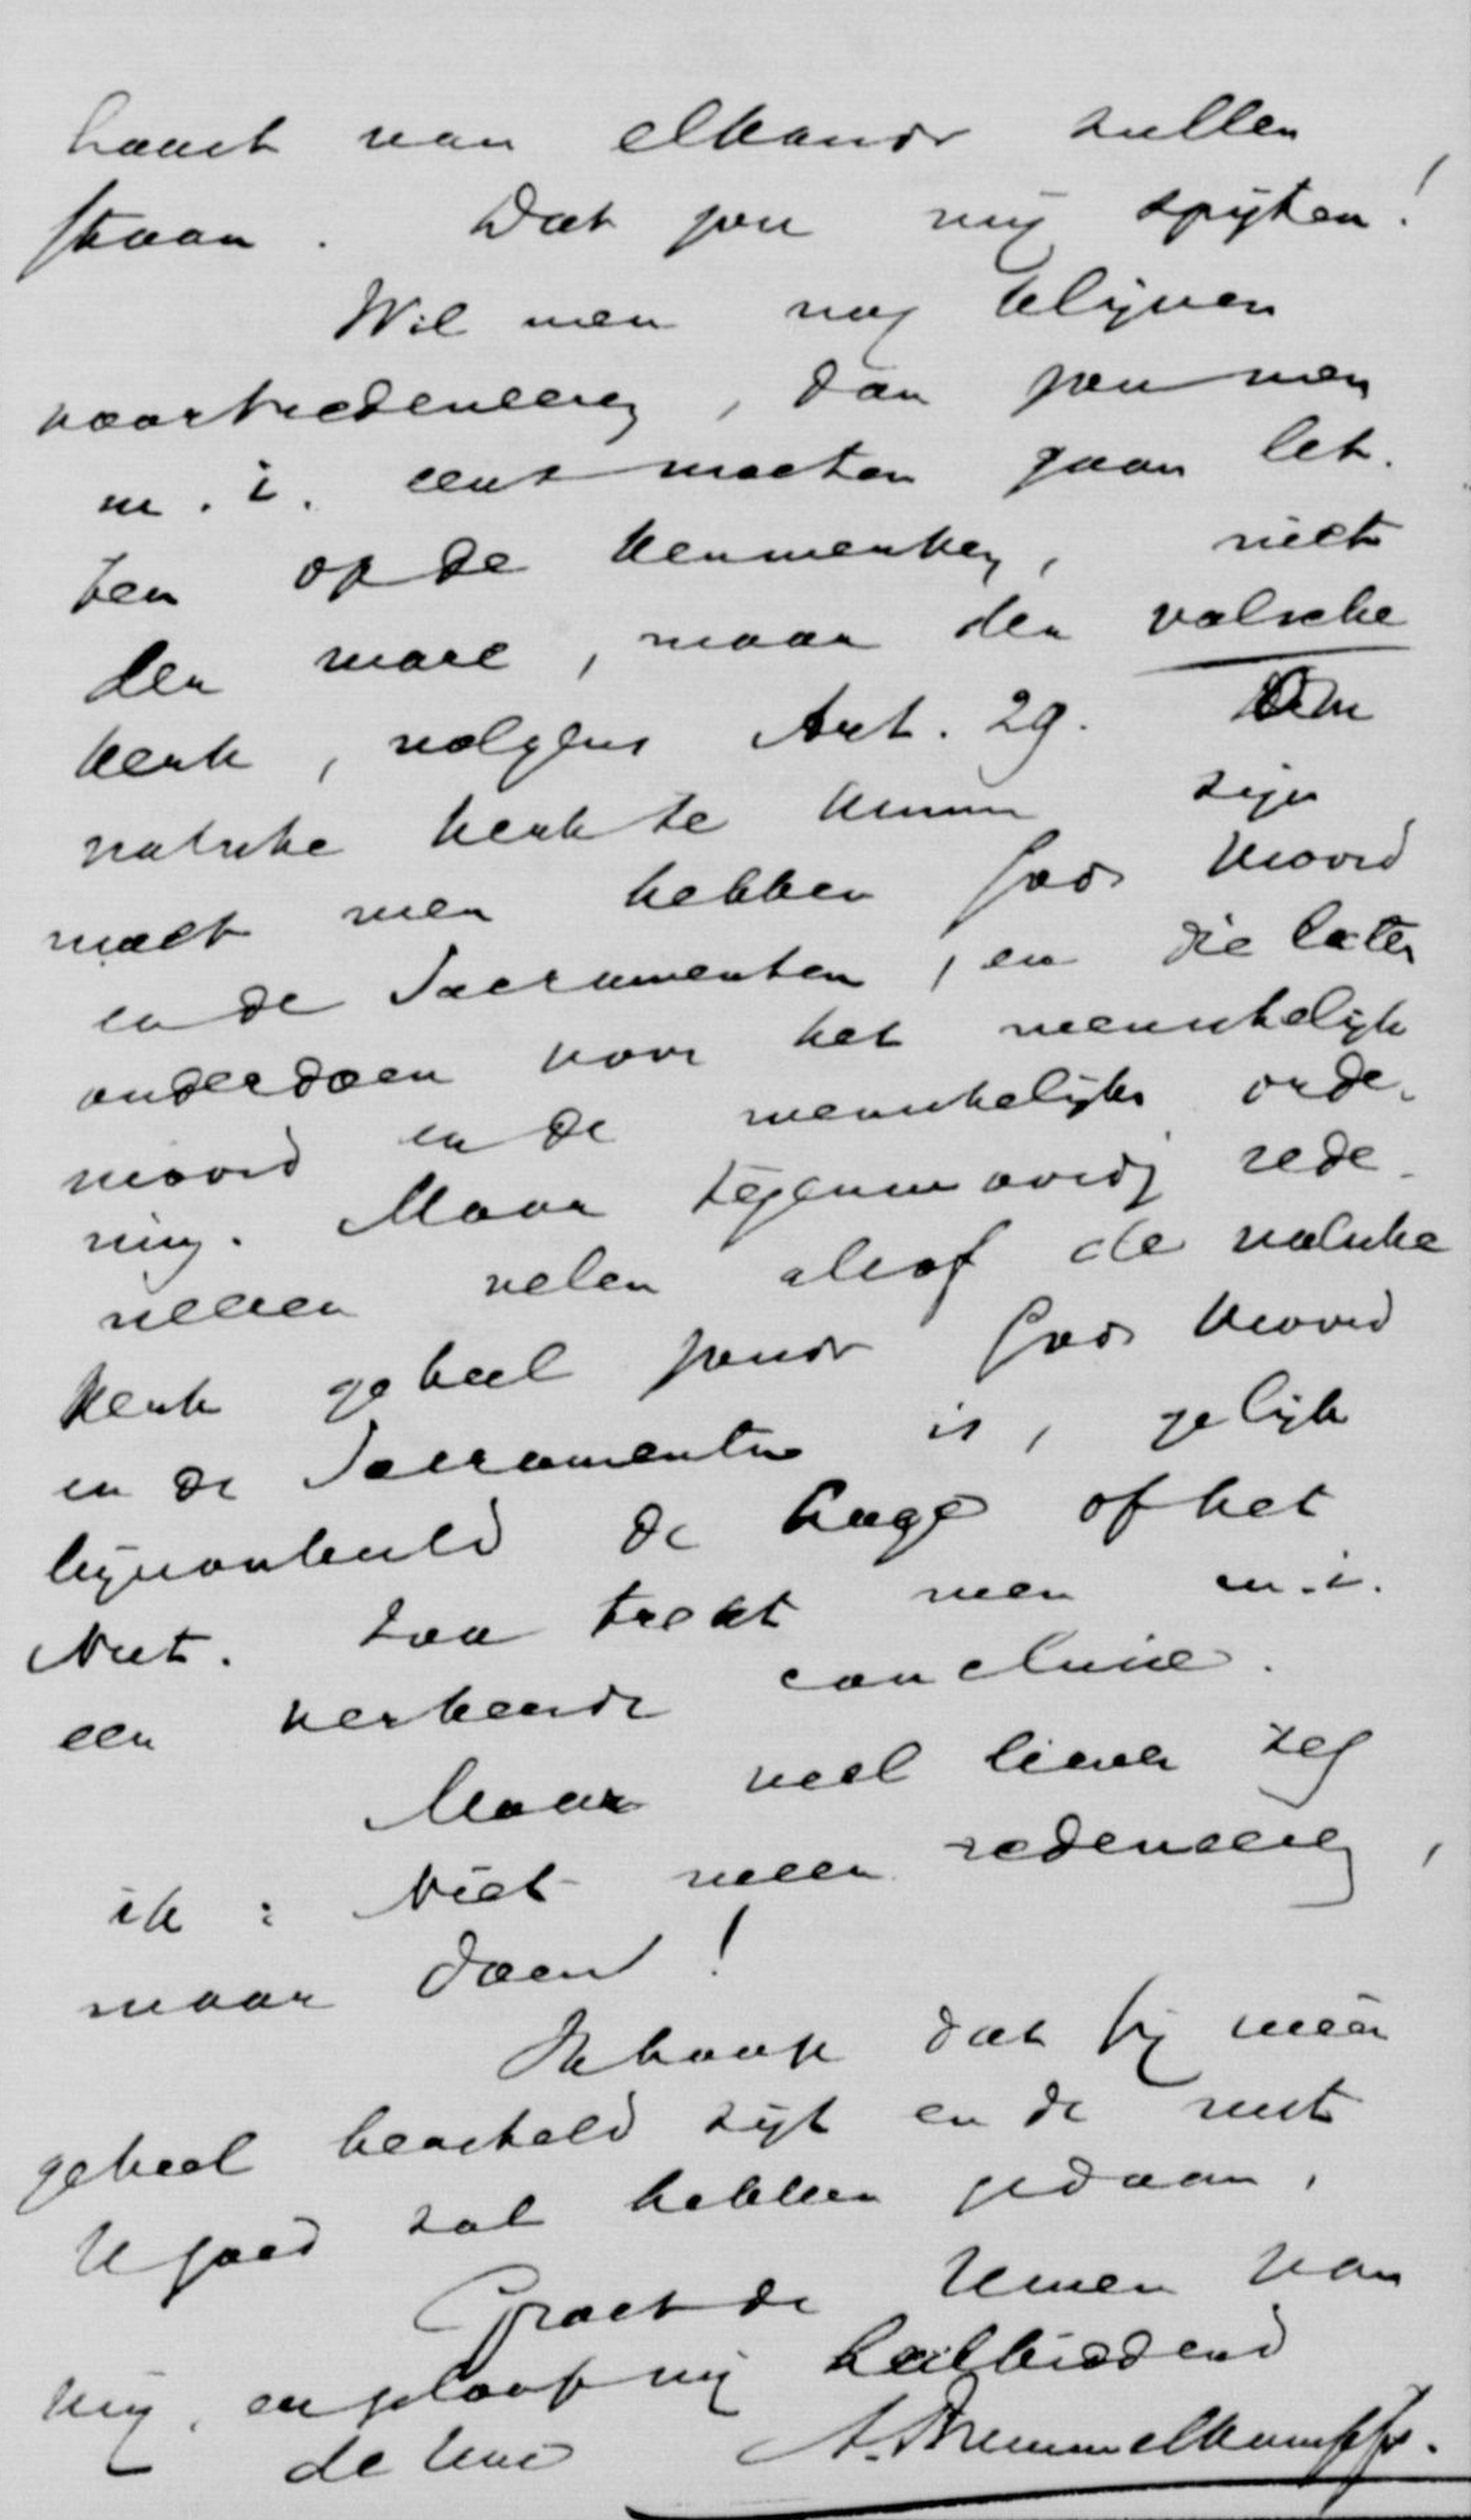 haast van elkander zullen
staan. Dat zou mij spijten!
Wil men nog blijven
voortredeneeren, dan zou men
m.i. eens moeten gaan let-
ten op de kenmerken, niet
der ware, maar der valsche
kerk, volgens Art. 29. Om
valsche kerk te kunnen zijn
moet men hebben Gods Woord
en de Sacramenten, en die laten
onderdoen voor het menschelijk
woord en de menschelijke orde-
ning. Maar tegenwoordig rede-
neeren velen alsof de valsche
kerk geheel zonder Gods Woord
en de Sacramenten is, gelijk
bijvoorbeeld de Loge of het
Nut. Zoo trekt men m.i.
een verkeerde conclusie.
Maar veel liever zeg
ik: Niet meer redeneeren,
maar doen!
Ik hoop dat gij weer
geheel hersteld zijt en de rust
U goed zal hebben gedaan.
Groet de Uwen van
mij, en geloof mij heilbiddend
de Uwe A. Brummelkamp Jr.